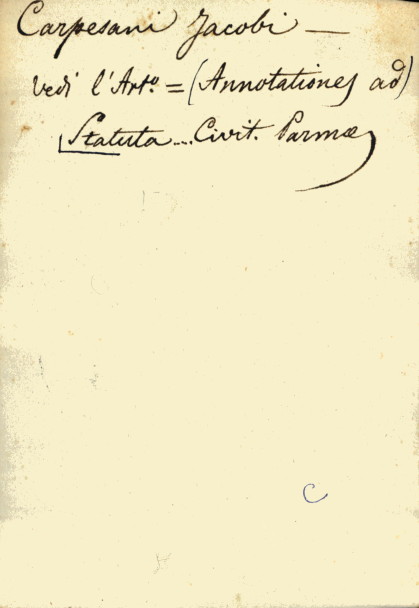 Carpesani Jacobi —
vedi l'Art.º = (Annotationes ad)
Statuta.... Civit. Parmæ
C